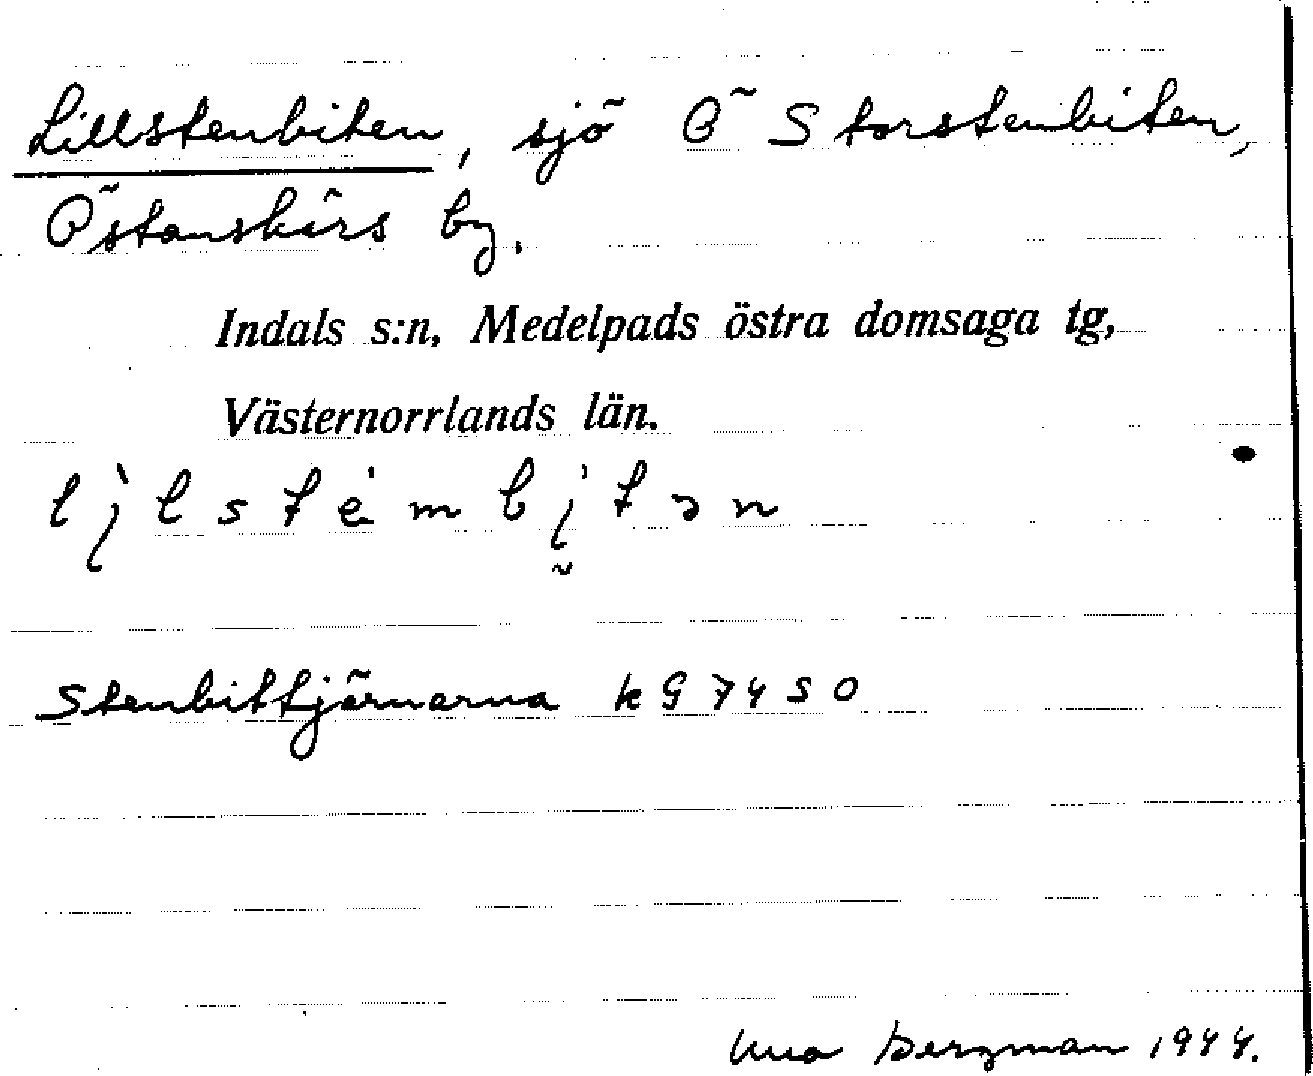 Lillstenbiten, sjö Ö Storstenbiten,
Östanskärs by.
Indals s:n, Medelpads östra domsaga tg,
Västernorrlands län.
Stenbittjärnarna k G 7450
Bergman 1944.